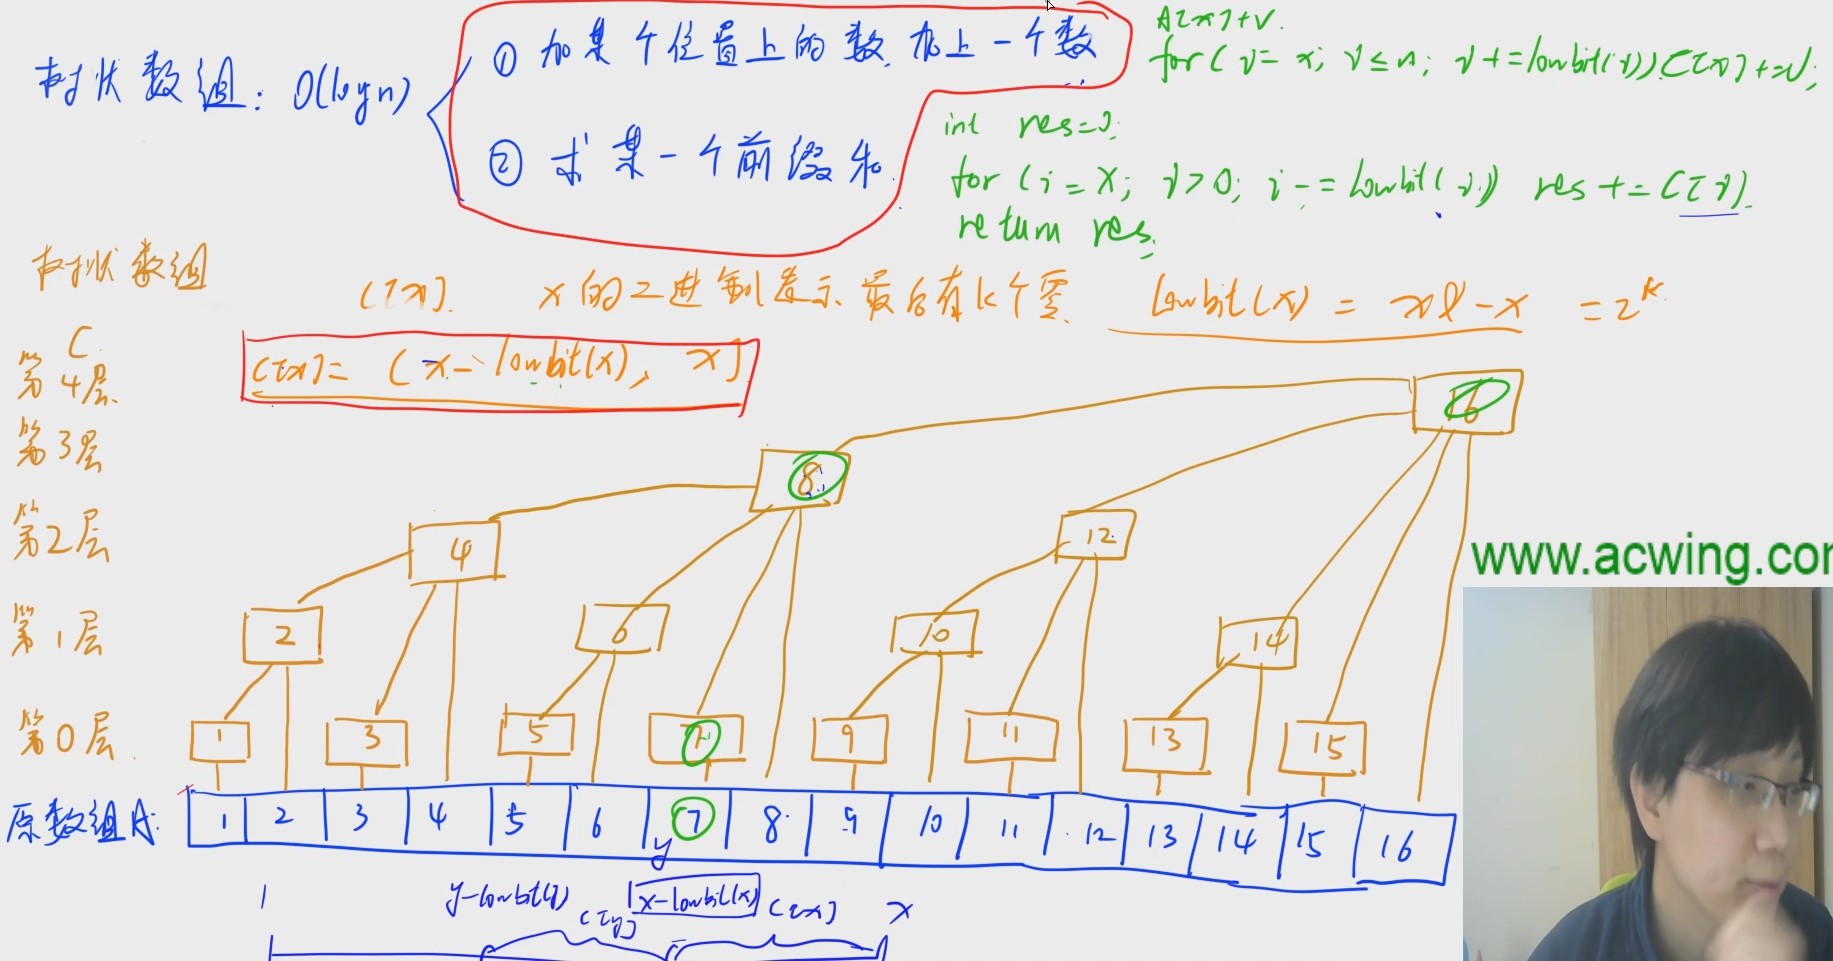 树状数组: O(logn)
① 加某个位置上的数, 加上一个数
② 求某一个前缀和
A[x]+V.
for(i = x; i ≤ n; i += lowbit(i)) C[x] += V;
int res=0;
for (i = x; i > 0; i -= lowbit(i)) res += C[i].
return res;
树状数组
C[x]. x的二进制表示最后有k个零. lowbit(x) = x&-x = 2^k
C
C[x] = (x - lowbit(x), x]
第4层
第3层
第2层
第1层
第0层
16
8
4 12
2 6 10 14
1 3 5 7 9 11 13 15
原数组A:
1 2 3 4 5 6 7 8 9 10 11 12 13 14 15 16
y
1 y-lowbit(y) x-lowbit(x) C[x] x
C[y]
www.acwing.co